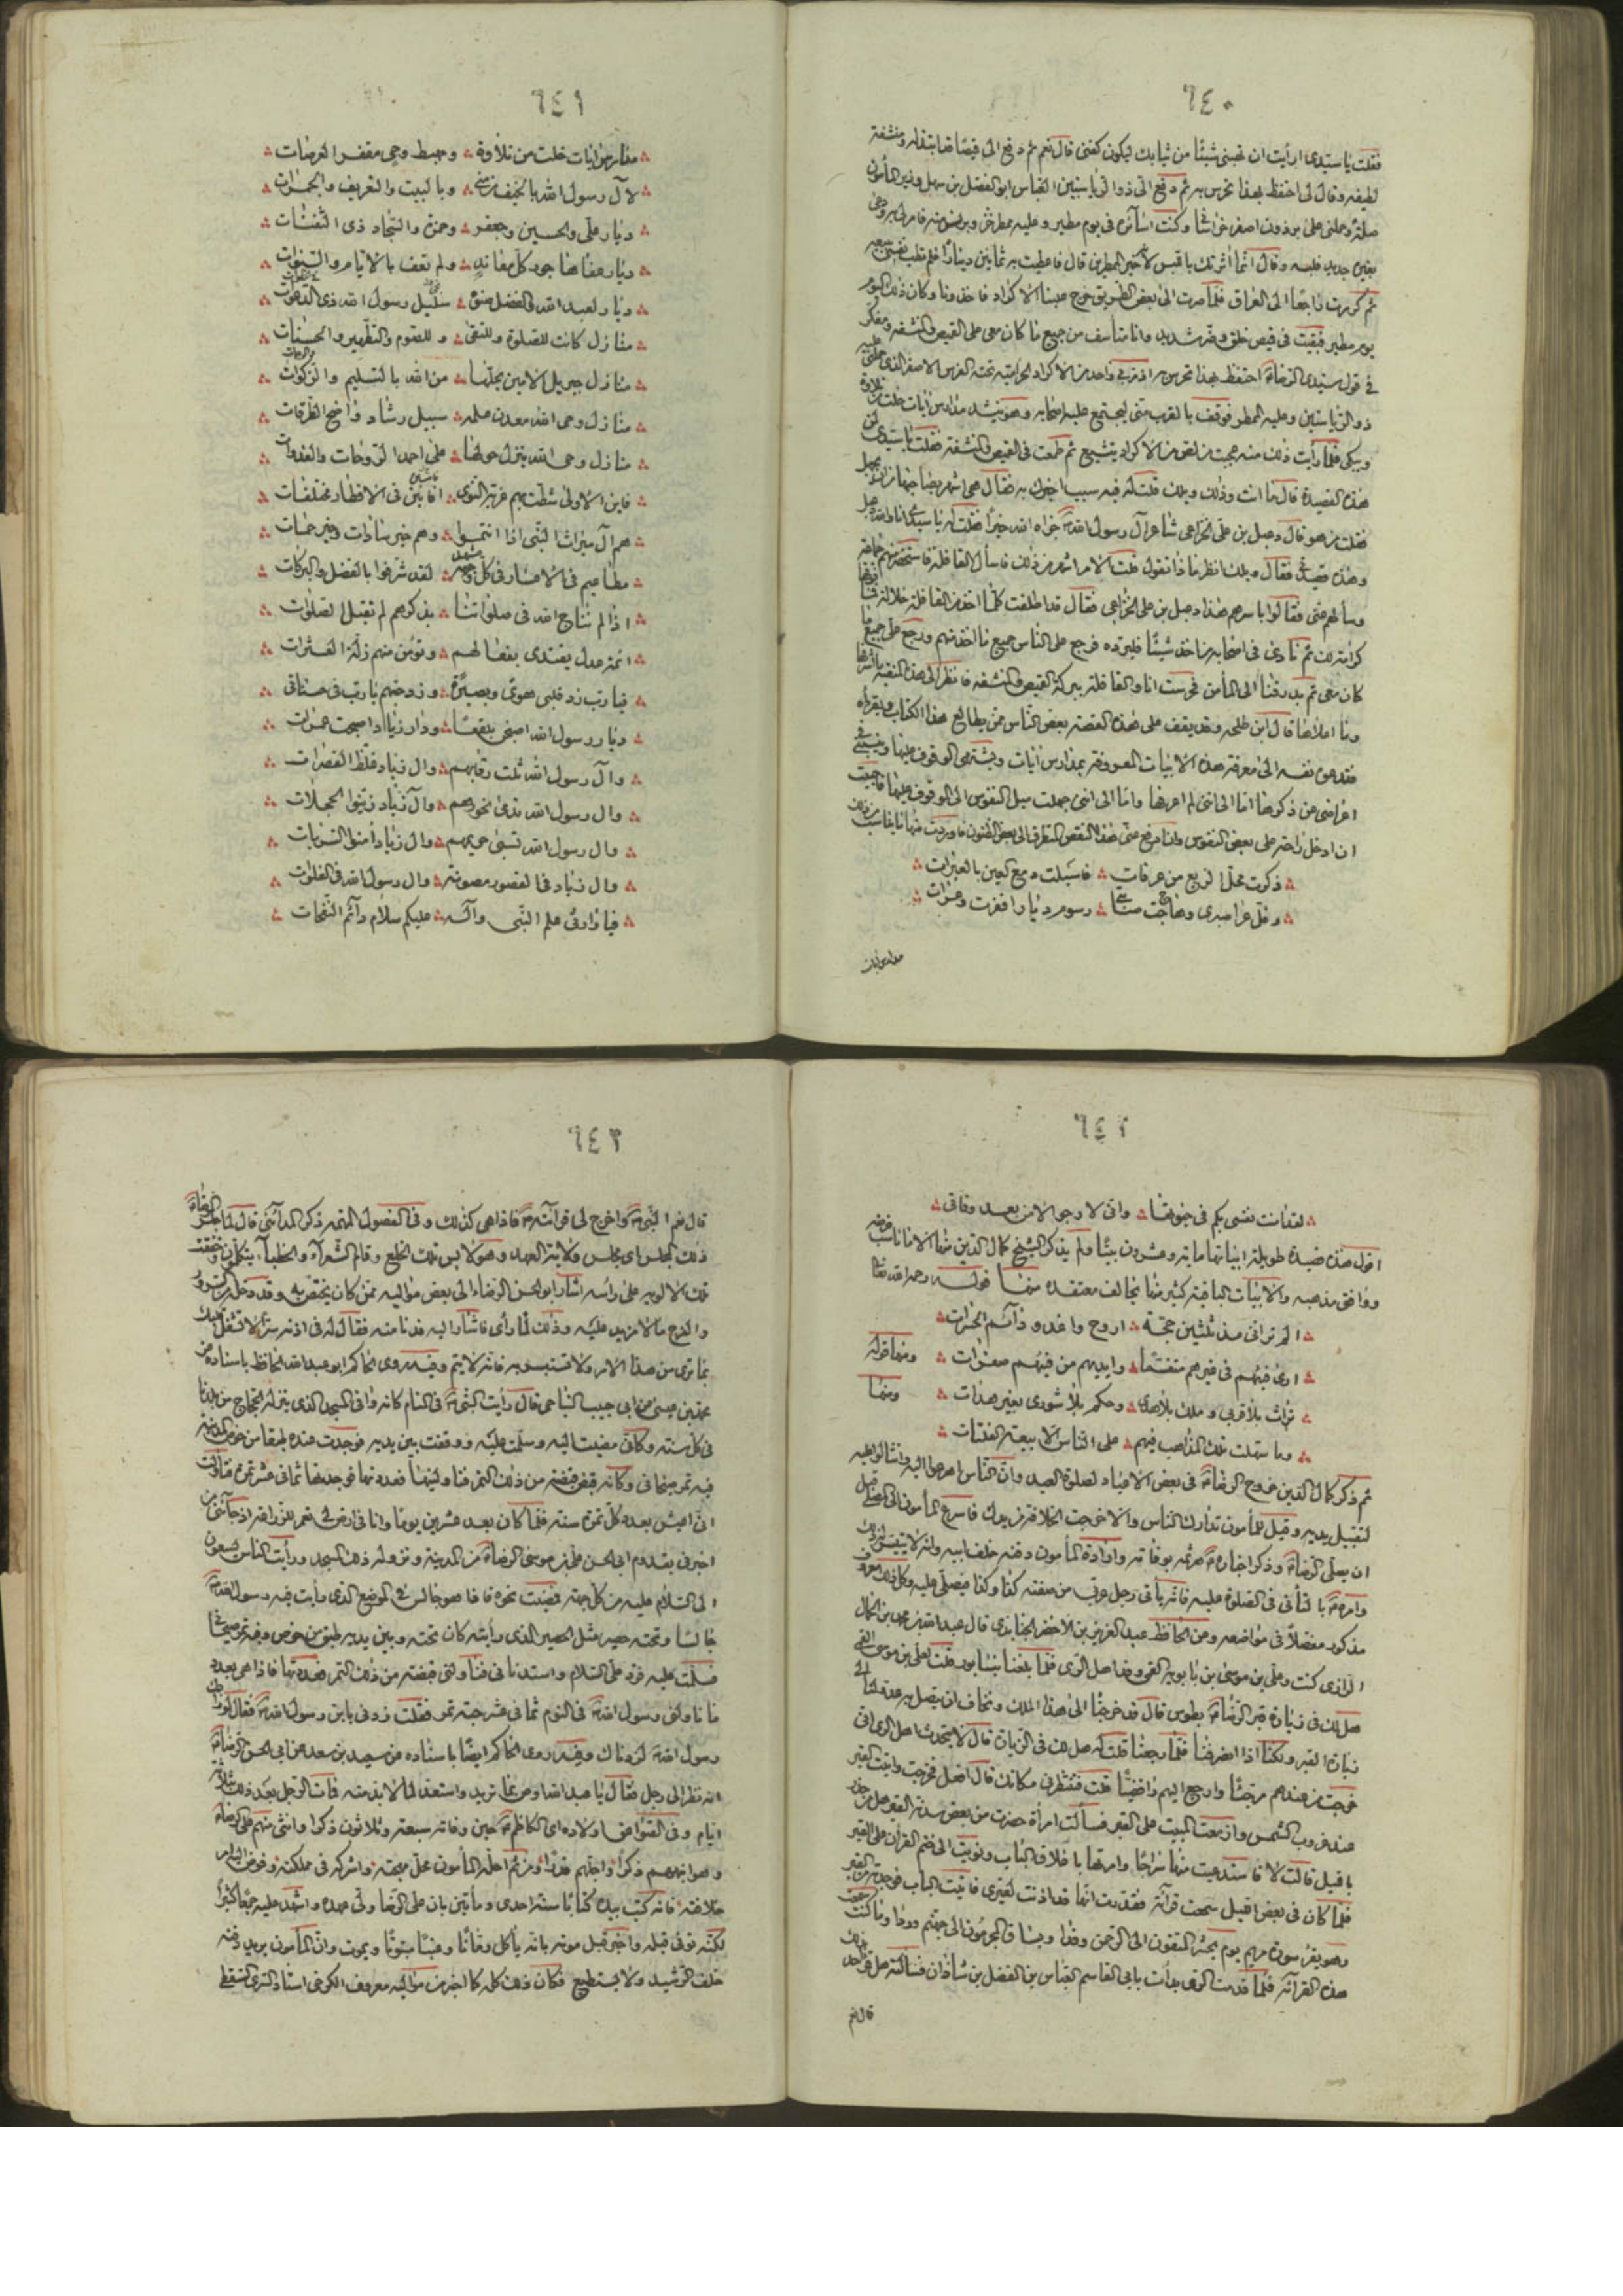 ٦٤٠
فقلت يا سيدى ان رأيت ان تهبنى شيئا من ثيابك ليكون كفنى قال نعم ثم دفع الى قميصا قد ابتذله ومنشفة
لطيفة وقال لى احفظ بهذا تحرس به ثم دفع الى ذو الرياستين العباس ابو الفضل بن سهل وزير المأمون
صلة وحملنى على برذون اصفر خراسانى وكنت اسايره فى يوم مطير وعليه ممطر خز وبرنس منه فامر لى به ودعى
بغيره جديد فلبسه وقال انما اثرتك باللبس لانه خير الممطرين قال فاعطيت به ثمانين دينارا فلم تطب نفسى ببيعه
ثم كررت راجعا الى العراق فلما صرت الى بعض الطريق خرج علينا الاكراد فاخذونا وكان ذلك اليوم
يوم مطير فبقيت فى قميص خلق وضر شديد وانا متأسف من جميع ما كان معى على القميص والمنشفة ومفكر
فى قول سيدى الرضا احتفظ بهذا تحرس به اذ مر بى واحد من الاكراد الحرامية تحته الفرس الاصفر الذى حملنى عليه
ذو الرياستين وعليه الممطر فوقف بالقرب منى ليجتمع عليه اصحابه وهو ينشد مدارس آيات خلت من تلاوة
ويبكى فلما رأيت ذلك منه عجبت من لص من الاكراد يتشيع ثم طمعت فى القميص والمنشفة فقلت يا سيدى لمن
هذه القصيدة قال ما انت وذلك ويلك قلت له فيه سبب اخبرك به فقال هى اشهر بصاحبها من ان يجهل
فقلت من هو قال دعبل بن على الخزاعى شاعر آل رسول الله جزاه الله خيرا فقلت له يا سيدى انا والله دعبل
وهذه قصيدتى فقال ويلك انظر ماذا تقول قلت الامر اشهر من ذلك فاسأل القافلة فاستحضر منهم جماعة
وسألهم عنى فقالوا باسرهم هذا دعبل بن على الخزاعى فقال قد اطلقت كلما اخذ من القافلة خلالة فما فوقها
كرامة لك ثم نادى فى اصحابه من اخذ شيئا فليرده فرجع على الناس جميع ما اخذ منهم ورجع على جميع ما
كان معى ثم بدرقنا الى المأمن فحرست انا والقافلة ببركة القميص والمنشفة فانظر الى هذه المنقبة ما اشرفها
وما اعلاها قال ابن طلحة وقد يقف على هذه القصة بعض الناس ممن يطالع هذا الكتاب ويقرأه
فتدعوه نفسه الى معرفة هذه الابيات المعروفة بمدارس آيات ويشتهى الوقوف عليها وينسبنى فى
اعراضى عن ذكرها اما الى اننى لم اعرفها واما الى اننى جهلت ميل النفوس الى الوقوف عليها فاحببت
ان ادخل راحة على بعض النفوس وان ادفع عنى هذا النقص المتطرق الى بعض الظنون فاوردت منها ما يناسب من ذلك
ذكرت محل الربع من عرفات فاسبلت دمع العين بالعبرات
وفل عرا صبرى وهاجت صبابتى رسوم ديار اقفرت وعرات
مدارس آيات
٦٤١
مدارس آيات خلت من تلاوة ومهبط وحى مقفر العرصات
لآل رسول الله بالخيف من منى وبالبيت والتعريف والجمرات
ديار على والحسين وجعفر وحمزة والسجاد ذى الثفنات
ديار عفاها جور كل معاند ولم تعف بالايام والسنوات
ديار لعبد الله والفضل صنوه سليل رسول الله ذى الدعوات
منازل كانت للصلوة وللتقى وللصوم والتطهير والحسنات
منازل جبريل الامين يحلها من الله بالتسليم والزكوات
منازل وحى الله معدن علمه سبيل رشاد واضح الطرقات
منازل وحى الله ينزل حولها على احمد الروحات والغدوات
فاين الاولى شطت بهم غربة النوى افانين فى الاقطار مختلفات
هم آل ميراث النبى اذا انتموا وهم خير سادات وخير حماة
مطاعيم فى الاعسار فى كل مشهد لقد شرفوا بالفضل والبركات
اذا لم نناج الله فى صلواتنا بذكرهم لم تقبل الصلوات
ائمة عدل يقتدى بفعالهم وتؤمن منهم زلة العثرات
فيا رب زد قلبى هدى وبصيرة وزد حبهم يا رب فى حسناتى
ديار رسول الله اصبحن بلقعا ودار زياد اصبحت عمرات
وآل رسول الله غلت رقابهم وال زياد غلظ القصرات
وال رسول الله تدمى نحورهم وآل زياد زينوا الحجلات
وال رسول الله تسبى حريمهم وال زياد امنوا السربات
وال زياد فى القصور مصونة وال رسول الله فى الفلوات
فيا وارثى علم النبى وآله عليكم سلام دائم النفحات
٦٤٢
لقد امنت نفسى بكم فى حيوتها وانى لارجو الامن بعد وفاتى
اقول هذه قصيدة طويلة ابياتها مائة وعشرون بيتا ولم يذكر الشيخ كمال الدين منها الا ما ناسب غرضه
ووافق مذهبه والابيات الباقية كثير منها يخالف معتقده منها قوله رحمه الله تعالى
الم تر انى مذ ثلثين حجة اروح واغدو دائم الحسرات
ارى فيئهم فى غيرهم متقسما وايديهم من فيئهم صفرات ومنها قوله
تراث بلا قربى وملك بلا هدى وحكم بلا شورى بغير هداة ومنها
وما سهلت تلك المذاهب فيهم على الناس الا بيعة الفلتات
ثم ذكر كمال الدين خروج الرضا فى بعض الاعياد لصلوة العيد وان الناس اهرعوا اليه وانثالوا عليه
لتقبيل يديه وقيل للمأمون تدارك الناس والا خرجت الخلافة من يدك فاسرع المأمون الى المصلى قبل
ان يصلى الرضا وذكر اخباره هرثمة بوفاته وارادة المأمون دفنه خلف ابيه وانه لا يتيسر له ذلك
وامره بالتأنى فى الصلوة عليه فانه يأتى رجل عربى من صفته كذا وكذا فيصلى عليه وكل ذلك معروف
مذكور مفصلا فى مواضعه وعن الحافظ عبد العزيز بن الاخضر الجنابذى قال عبد الله بن محمد بن الجمال
الرازى كنت وعلى بن موسى بن بابويه القمى وفد اهل الرى فلما بلغنا نيسابور قلت لعلى بن موسى القمى
هل لك فى زيارة قبر الرضا بطوس قال قد خرجنا الى هذا الملك ونخاف ان يتصل به عدولنا الى
زيارة القبر ولكنا اذا انصرفنا فلما رجعنا قلت له هل لك فى الزيارة قال لا يتحدث اهل الرى انى
خرجت من عندهم مرجئا وارجع اليهم رافضيا قلت فتنتظرنى مكانك قال افعل فخرجت واتيت القبر
عند غروب الشمس وازمعت المبيت على القبر فسألت امرأة حضرت من بعض سدنة القبر هل من حذر
بالليل قالت لا فاستدعيت منها سراجا وامرتها باغلاق الباب ونويت الى ختم القرآن على القبر
فلما كان فى بعض الليل سمعت قرآنه فقدرت انها قد اذنت لغيرى فاتيت الباب فوجدته
وهو يقرأ سورة مريم يوم يحشر المتقون الى الرحمن وفدا ويساق المجرمون الى جهنم وردا وما كنت سمعت
هذه القرآئة فلما قدمت الرى بدأت بابى القاسم العباس بن الفضل بن شاذان فسألته هل قرأ احد بذلك
قال نعم
٦٤٣
قال نعم النبى واخرج لى قرآئته فاذا هى كذلك وفى الفصول المهمة ذكر المدائنى قال لما جلس الرضا
ذلك المجلس اى مجلس ولاية العهد وهو لابس تلك الخلع وقام الشعرآء والخطبآء يتكلمون وخفقت
تلك الالوية على رأسه اشار ابو الحسن الرضاء الى بعض مواليه ممن كان يختص به وقد دخله من السرور
والفرح ما لا مزيد عليه وذلك لما رأى فاشار اليه فدنا منه فقال له فى اذنه سرا لا تشغل قلبك
بما ترى من هذا الامر ولا تستبشر به فانه لا يتم وفيه روى الحاكم ابو عبد الله الحافظ باسناده عن
محمد بن عيسى عن ابى حبيب النباجى قال رأيت النبى فى المنام كانه وافى المسجد الذى ينزله الحجاج من بلدنا
فى كل سنة وكانى مضيت اليه وسلمت عليه ووقفت بين يديه فوجدت عنده طبقا من خوص المدينة
فيه تمر صيحانى وكانه قبض قبضة من ذلك التمر فناولنيها فعددتها فوجدتها ثمانى عشر تمرة فتأولت
انى اعيش بعدد كل تمرة سنة فلما كان بعد عشرين يوما وانا فى ارض لى تعمر للزراعة اذ جائنى من
اخبرنى بقدوم ابى الحسن على بن موسى الرضا من المدينة ونزوله ذلك المسجد ورأيت الناس يسعون
الى السلام عليه من كل جهة فمضيت نحوه فاذا هو جالس فى الموضع الذى رأيت فيه رسول الله
جالسا وتحته حصير مثل الحصير الذى رأيته كان تحته وبين يديه طبق من خوص وفيه تمر صيحانى
فسلمت عليه فرد على السلام واستدنانى فناولنى قبضة من ذلك التمر فعددتها فاذا هى بعدد
ما ناولنى رسول الله فى النوم ثمانى عشر حبة تمر فقلت زدنى يا بن رسول الله فقال لو زادك
رسول الله لزدناك وفيه روى الحاكم ايضا باسناده عن سعيد بن سعد عن ابى الحسن الرضا
انه نظر الى رجل فقال يا عبد الله اوص بما تريد واستعد لما لا بد منه فمات الرجل بعد ذلك بثلثة
ايام وفى الصواعق اولاده اى الكاظم حين وفاته سبعة وثلاثون ذكرا وانثى منهم على الرضا
وهو انبههم ذكرا واجلهم قدرا ومن ثم احله المأمون محل مهجته واشركه فى مملكته وفوض اليه امر
خلافته فانه كتب بيده كتابا سنة احدى ومأتين بان على الرضا ولى عهده واشهد عليه جمعا كثيرا
لكنه توفى قبله واخبر قبل موته بانه يأكل رمانا وعنبا مبثوثا ويموت وان المأمون يريد دفنه
خلف الرشيد ولا يستطيع فكان ذلك كله كما اخبر من مواليه معروف الكرخى استاذ السرى السقطى